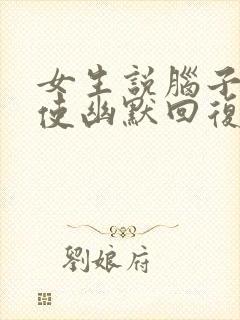 女生説腦子
使幽默回復
劉娘府